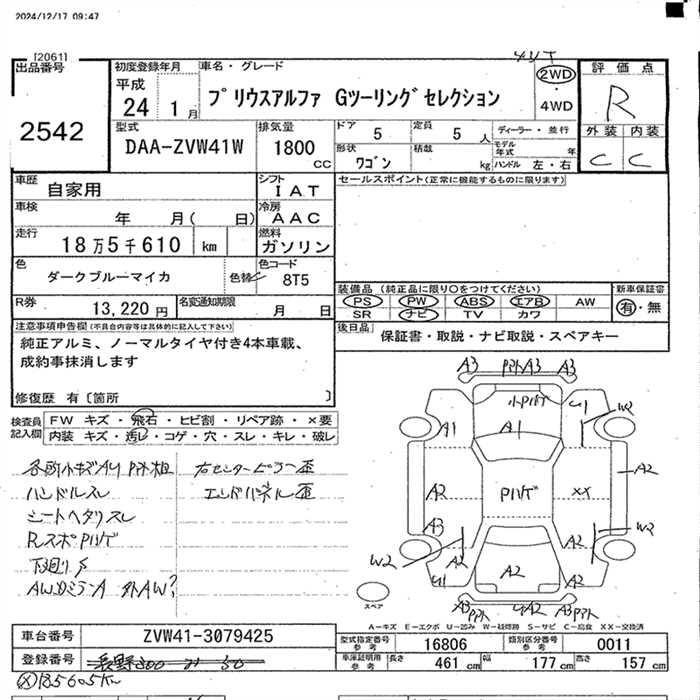 2024/12/17 09:47
[2061]
出品番号
2542
初度登録年月
平成
24 1 月
車名・グレード
プリウスアルファ Gツーリングセレクション
2WD
・
4WD
評価点
R
外装 内装
C C
型式
DAA-ZVW41W
排気量
1800
cc
ドア 5
定員 5 人
形状 ワゴン
積載 kg
ディーラー・並行
モデル年式 年
ハンドル 左・右
車歴
自家用
シフト
IAT
セールスポイント(正常に機能するものに限ります)
車検
年 月( 日)
冷房
AAC
走行
18万5千610 km
燃料
ガソリン
色
ダークブルーマイカ
色替
色コード
8T5
装備品 (純正品に限り○をつけてください)
新車保証書
PS PW ABS エアB AW
SR ナビ TV カワ
有・無
R券
13,220円
名変通知期限
月 日
後日品
保証書・取説・ナビ取説・スペアキー
注意事項申告欄(不具合内容等は具体的に記入して下さい)
純正アルミ、ノーマルタイヤ付き4本車載、
成約事抹消します
修復歴 有〔箇所 〕
検査員
記入欄
FW キズ・飛石・ヒビ割・リペア跡・×要
内装 キズ・汚レ・コゲ・穴・スレ・キレ・破レ
各所小キズA4 P
右センターピラー歪
ハンドルスレ
エンドパネル歪
シートヘタリスレ
下廻りS
外AW?
A3 A3 A3
U1 W2
A1 A1
A2
A2 XX
A3 W2
W2 A2 A2
U1 A2 A2
A3 A2 A3
スペア
A-キズ E-エクボ U-凹み W-補修跡 S-サビ C-腐食 XX-交換済
車台番号
ZVW41-3079425
型式指定番号
参考
16806
類別区分番号
参考
0011
登録番号
車庫証明用
参考
長さ 461 cm
幅 177 cm
高さ 157 cm
185605km